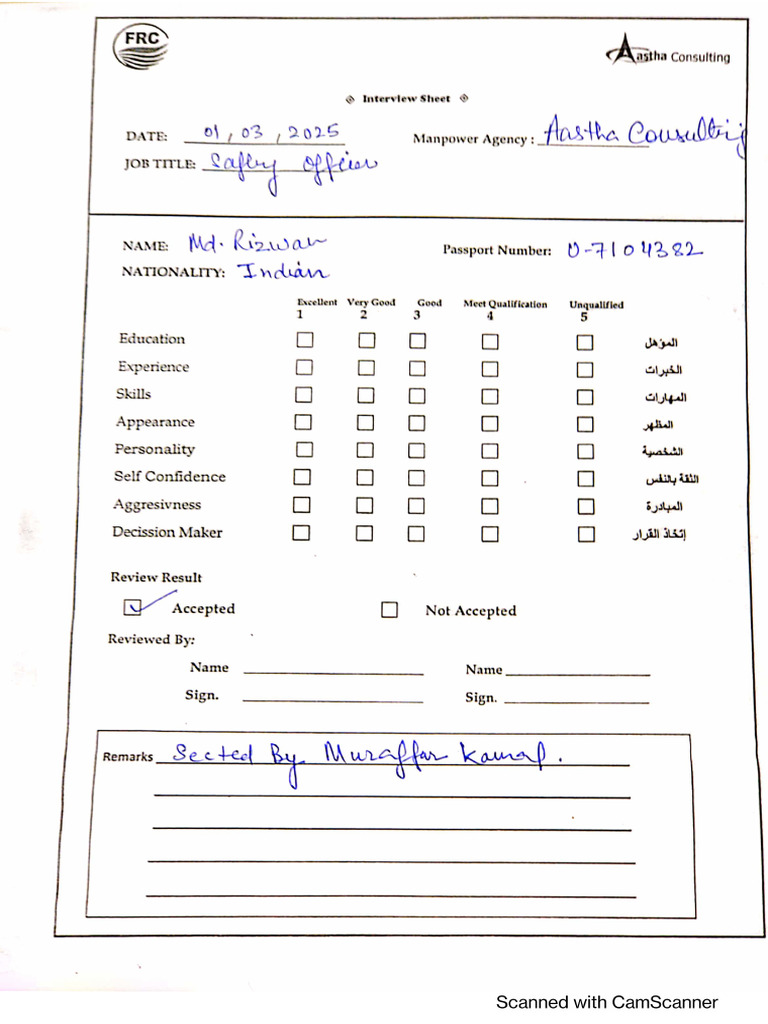 FRC
Aastha Consulting
Interview Sheet
DATE: 01, 03, 2025 Manpower Agency : Aastha Consulting
JOB TITLE: Safety Officer
NAME: Md. Rizwan Passport Number: U-7104382
NATIONALITY: Indian
Excellent Very Good Good Meet Qualification Unqualified
1 2 3 4 5
Education المؤهل
Experience الخبرات
Skills المهارات
Appearance المظهر
Personality الشخصية
Self Confidence الثقة بالنفس
Aggresivness المبادرة
Decission Maker إتخاذ القرار
Review Result
Accepted Not Accepted
Reviewed By:
Name Name
Sign. Sign.
Remarks Sected By Muzaffar Kamal.
Scanned with CamScanner